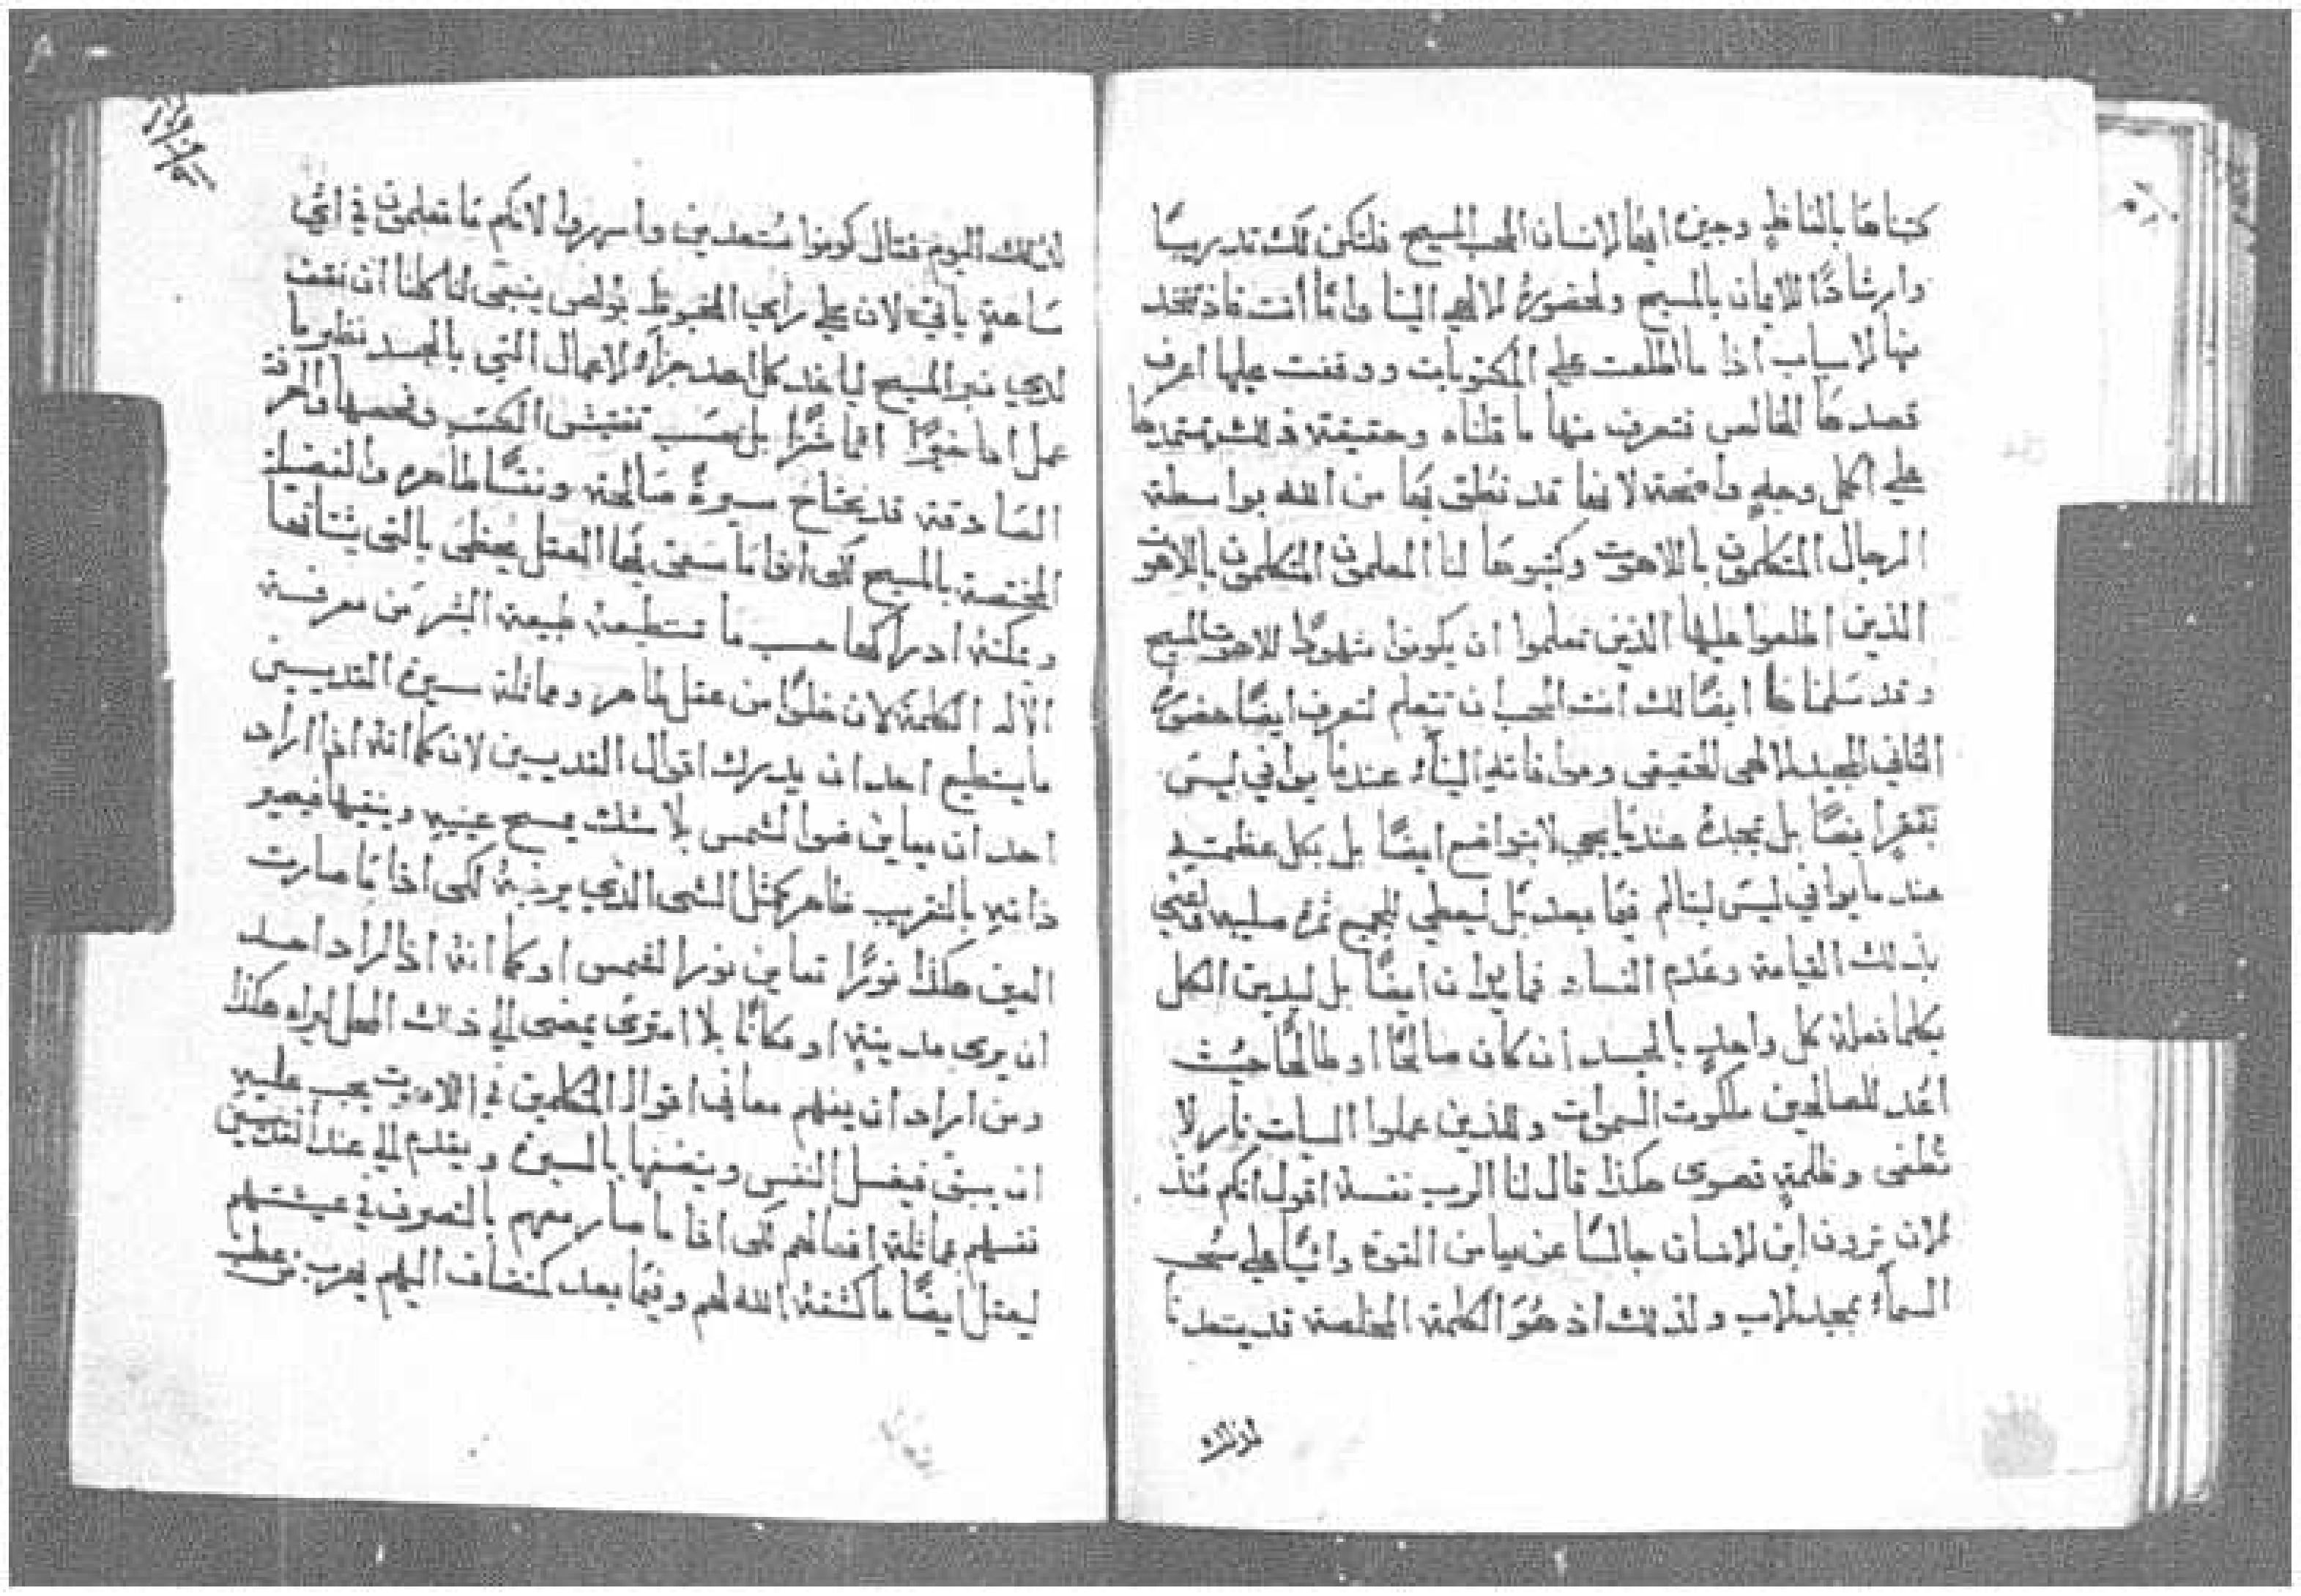 كتبناها بالفاظٍ وجيزة ايها الانسان المحب المسيح فلتكن لك تدريبًا
وارشادًا للايمان بالمسيح ولحضوره الالهي الينا واما انت فاذ تتخد
منها الاسباب اذا ما اطلعت علي المكتوبات ووقفت عليها اعرف
قصدها الخالص فتعرف منها ما قلناه وحقيقة ذلك تعتمدها
علي اكمل وجهٍ واضحة لانها قد نُطق بها من الله بواسطة
الرجال المتكلمون باللاهوت وكتبوها لنا المعلمون المتكلمون باللاهوت
الذين اطلعوا عليها الذين تعلموا ان يكونوا شهودًا للاهوت المسيح
وقد سلمناها ايضًا لك انت المحب ان تتعلم لتعرف ايضًا حضورهُ
الثاني المجيد الالهي الحقيقي وموافاته الينا عندما يوافي ليس
بفقرٍ ايضًا بل بمجدهُ عندما يجي لا بتواضع ايضًا بل بكل عظمته
عندما يوافي ليس ليتالم فيما بعد بل ليعطي الجميع ثمرة صليبه واعني
بذلك القيامة وعدم الفساد فما يدان ايضًا بل ليدين الكل
بكلما فعلهُ كل واحدٍ بالجسد ان كان صالحًا او طالحًا حيث
اعد للصالحين ملكوت السموات وللذين عملوا السيات نار لا
تطفى وظلمةٍ قصوى هكذا قال لنا الرب نفسه اقول انكم منذ
الان ترون ابن الانسان جالسًا عن ميامن القوة واتيًا علي سُحب
السماء بمجد الاب ولذلك اذ هُوَ الكلمة المخلصة قد يتعدنا
لذلك
لذلك اليوم فقال كونوا مُستعدين واسهروا لانكم ما تعلمون في اي
ساعةٍ ياتي لان علي راي المغبوط بولص ينبغي لنا كلنا ان نقف
لدي منبر المسيح لياخد كل احد جزاء الاعمال التي بالجسد نظير ما
عمل اما خيرًا اما شرًا بل بحسب تفتيش الكتب وفحصها والمعرفة
الصادقة قد يحتاج سيرةً صالحة ونفسًا طاهره والفضيلة
المختصة بالمسيح لكي اذا ما سعى بها العقل يحظى بالتي يشتاقها
ويمكنهُ ادراكها حسب ما تستطيعهُ طبيعة البشر من معرفة
الاله الكلمة لان خلوًا من عقل طاهر ومماثلة سيرة القديسين
ما يستطيع احد ان يدرك اقوال القديسين لان كما انهُ اذا اراد
احد ان يعاين ضوا الشمس بلا شك يمسح عينيه وينقيها فيصير
ذاته بالتقريب طاهر كمثل الشي الذي يرغبهُ لكي اذا ما صارت
العين هكذا نورًا تعاين نور الشمس او كما انهُ اذا اراد احد
ان يرى مدينةٍ او مكانًا بلا امترى يمضي الي ذلك المحل ليراه هكذا
ومن اراد ان يفهم معاني اقوال المتكلمين في اللاهوت يجب عليه
ان يسبق فيغسل النفس وينضفها بالسيرة ويقدم الي عند القديسين
نفسهم بمماثلة افعالهم لكي اذا ما صار معهم بالتصرف في عيشتهم
ليعقل ايضًا ما كشفهُ الله لهم وفيما بعد كمنضاف اليهم يهرب من عطب